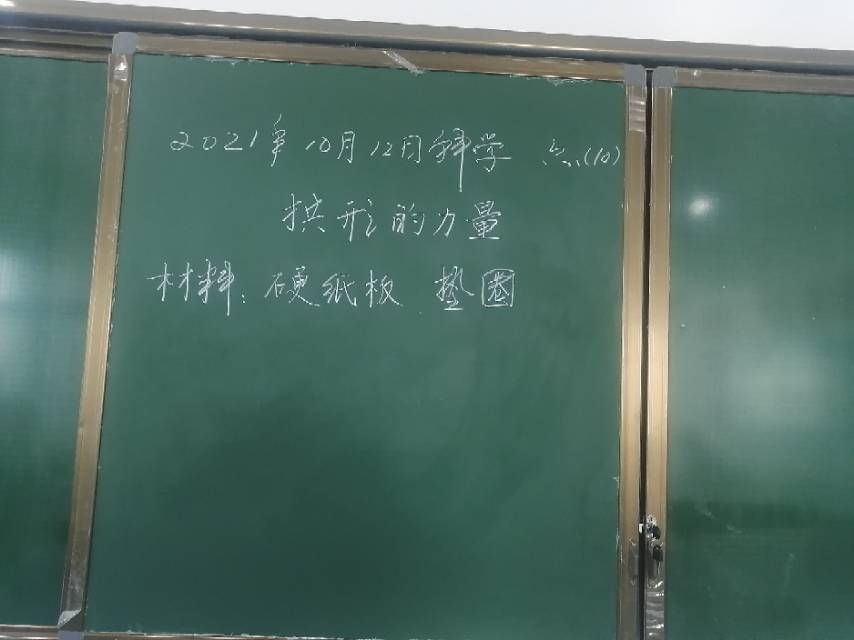 2021年10月12日科学 六(10)
拱形的力量
材料:硬纸板 垫圈